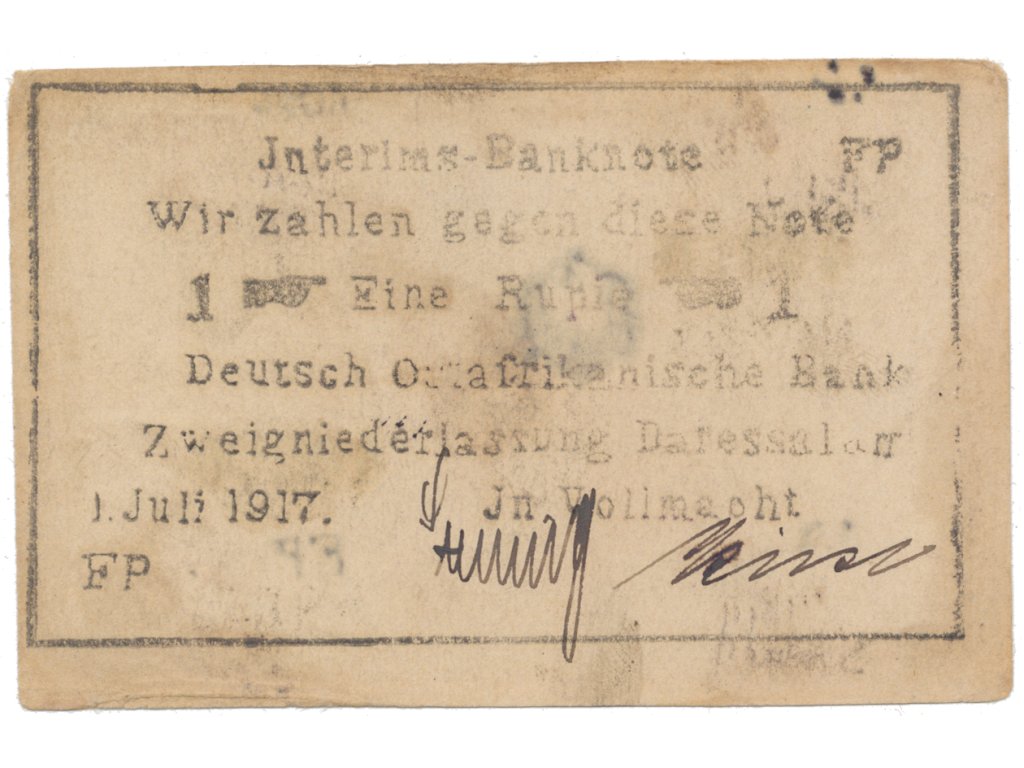 Jnterims-Banknote FP
Wir zahlen gegen diese Note
1 Eine Rupie 1
Deutsch Ostafrikanische Bank
Zweigniederlassung Daressalam
1. Juli 1917. Jn Vollmacht
FP